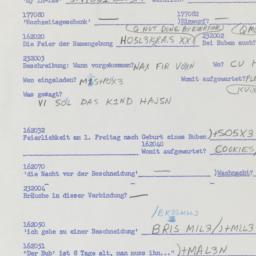 177080 177082
'Hochzeitsgeschenk' 'Hinweg?'
162020 232002
Die Feier der Namengebung HOSL3KRAS XXX Bei Buben auch?
232003
Beschreibung: Wann vorgekommen? WAX FIR VOXN Wo?
Wen eingeladen? Womit aufgewartet?
Was gesagt?
VI SOL DAS KIND HAJSN
162032
Feierlichkeit am 1. Freitag nach Geburt eines Buben )+SO5X3
162040
Womit aufgewartet? COOKIES,
162070
'die Nacht vor der Beschneidung' Wachnacht?
232004
Bräuche in dieser Verbindung?
162050
'ich gehe zu einer Beschneidung' BRIS MIL3/)+MIL3
162051
"Der Bub' ist 8 Tage alt, man muss ihn..." )+MAL3N